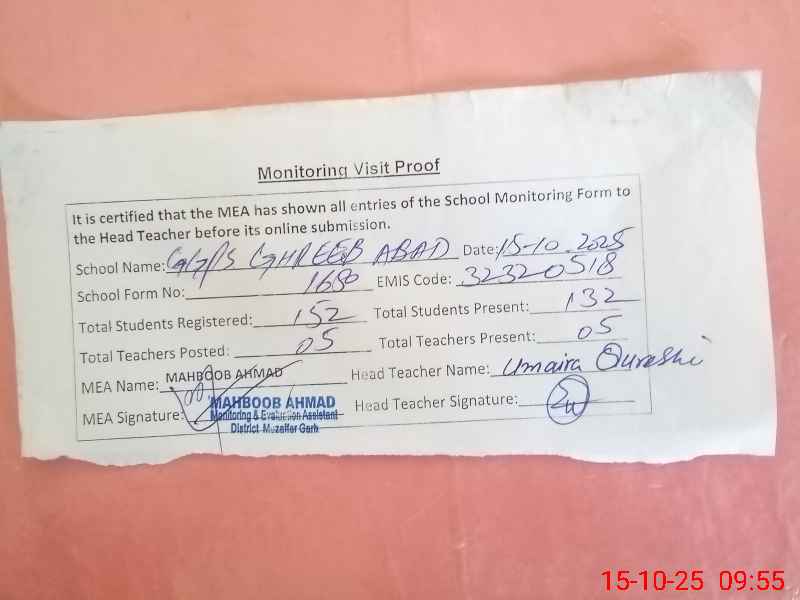 Monitoring Visit Proof
It is certified that the MEA has shown all entries of the School Monitoring Form to
the Head Teacher before its online submission.
School Name: GGPS GHREEB ABAD Date: 15-10.2025
School Form No: 1680 EMIS Code: 32320518
Total Students Registered: 152 Total Students Present: 132
Total Teachers Posted: 05 Total Teachers Present: 05
MEA Name: MAHBOOB AHMAD Head Teacher Name: Umaira Qureshi
MEA Signature: Head Teacher Signature:
MAHBOOB AHMAD
Monitoring & Evaluation Assistant
District Muzaffar Garh
15-10-25 09:55